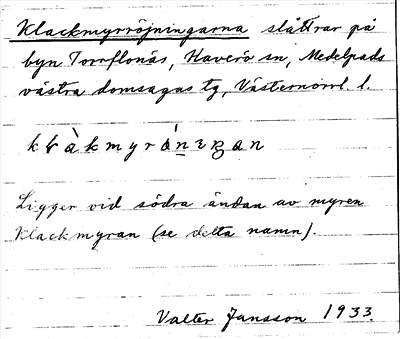 Klackmyrröjningarna slåttrar på
byn Torrflonäs, Haverö sn, Medelpads
västra domsagas tg, Västernorrl. l.
Ligger vid södra ändan av myren
Klackmyran (se detta namn).
Valter Jansson 1933.